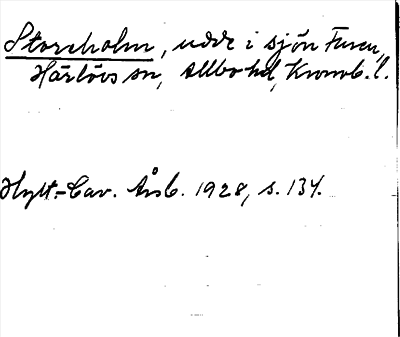 Storeholm, udde i sjön Furen,
Härlövs sn, Allbo hd, Kronob. l.
Hylt.-Cav. Årsb. 1928, s. 134.